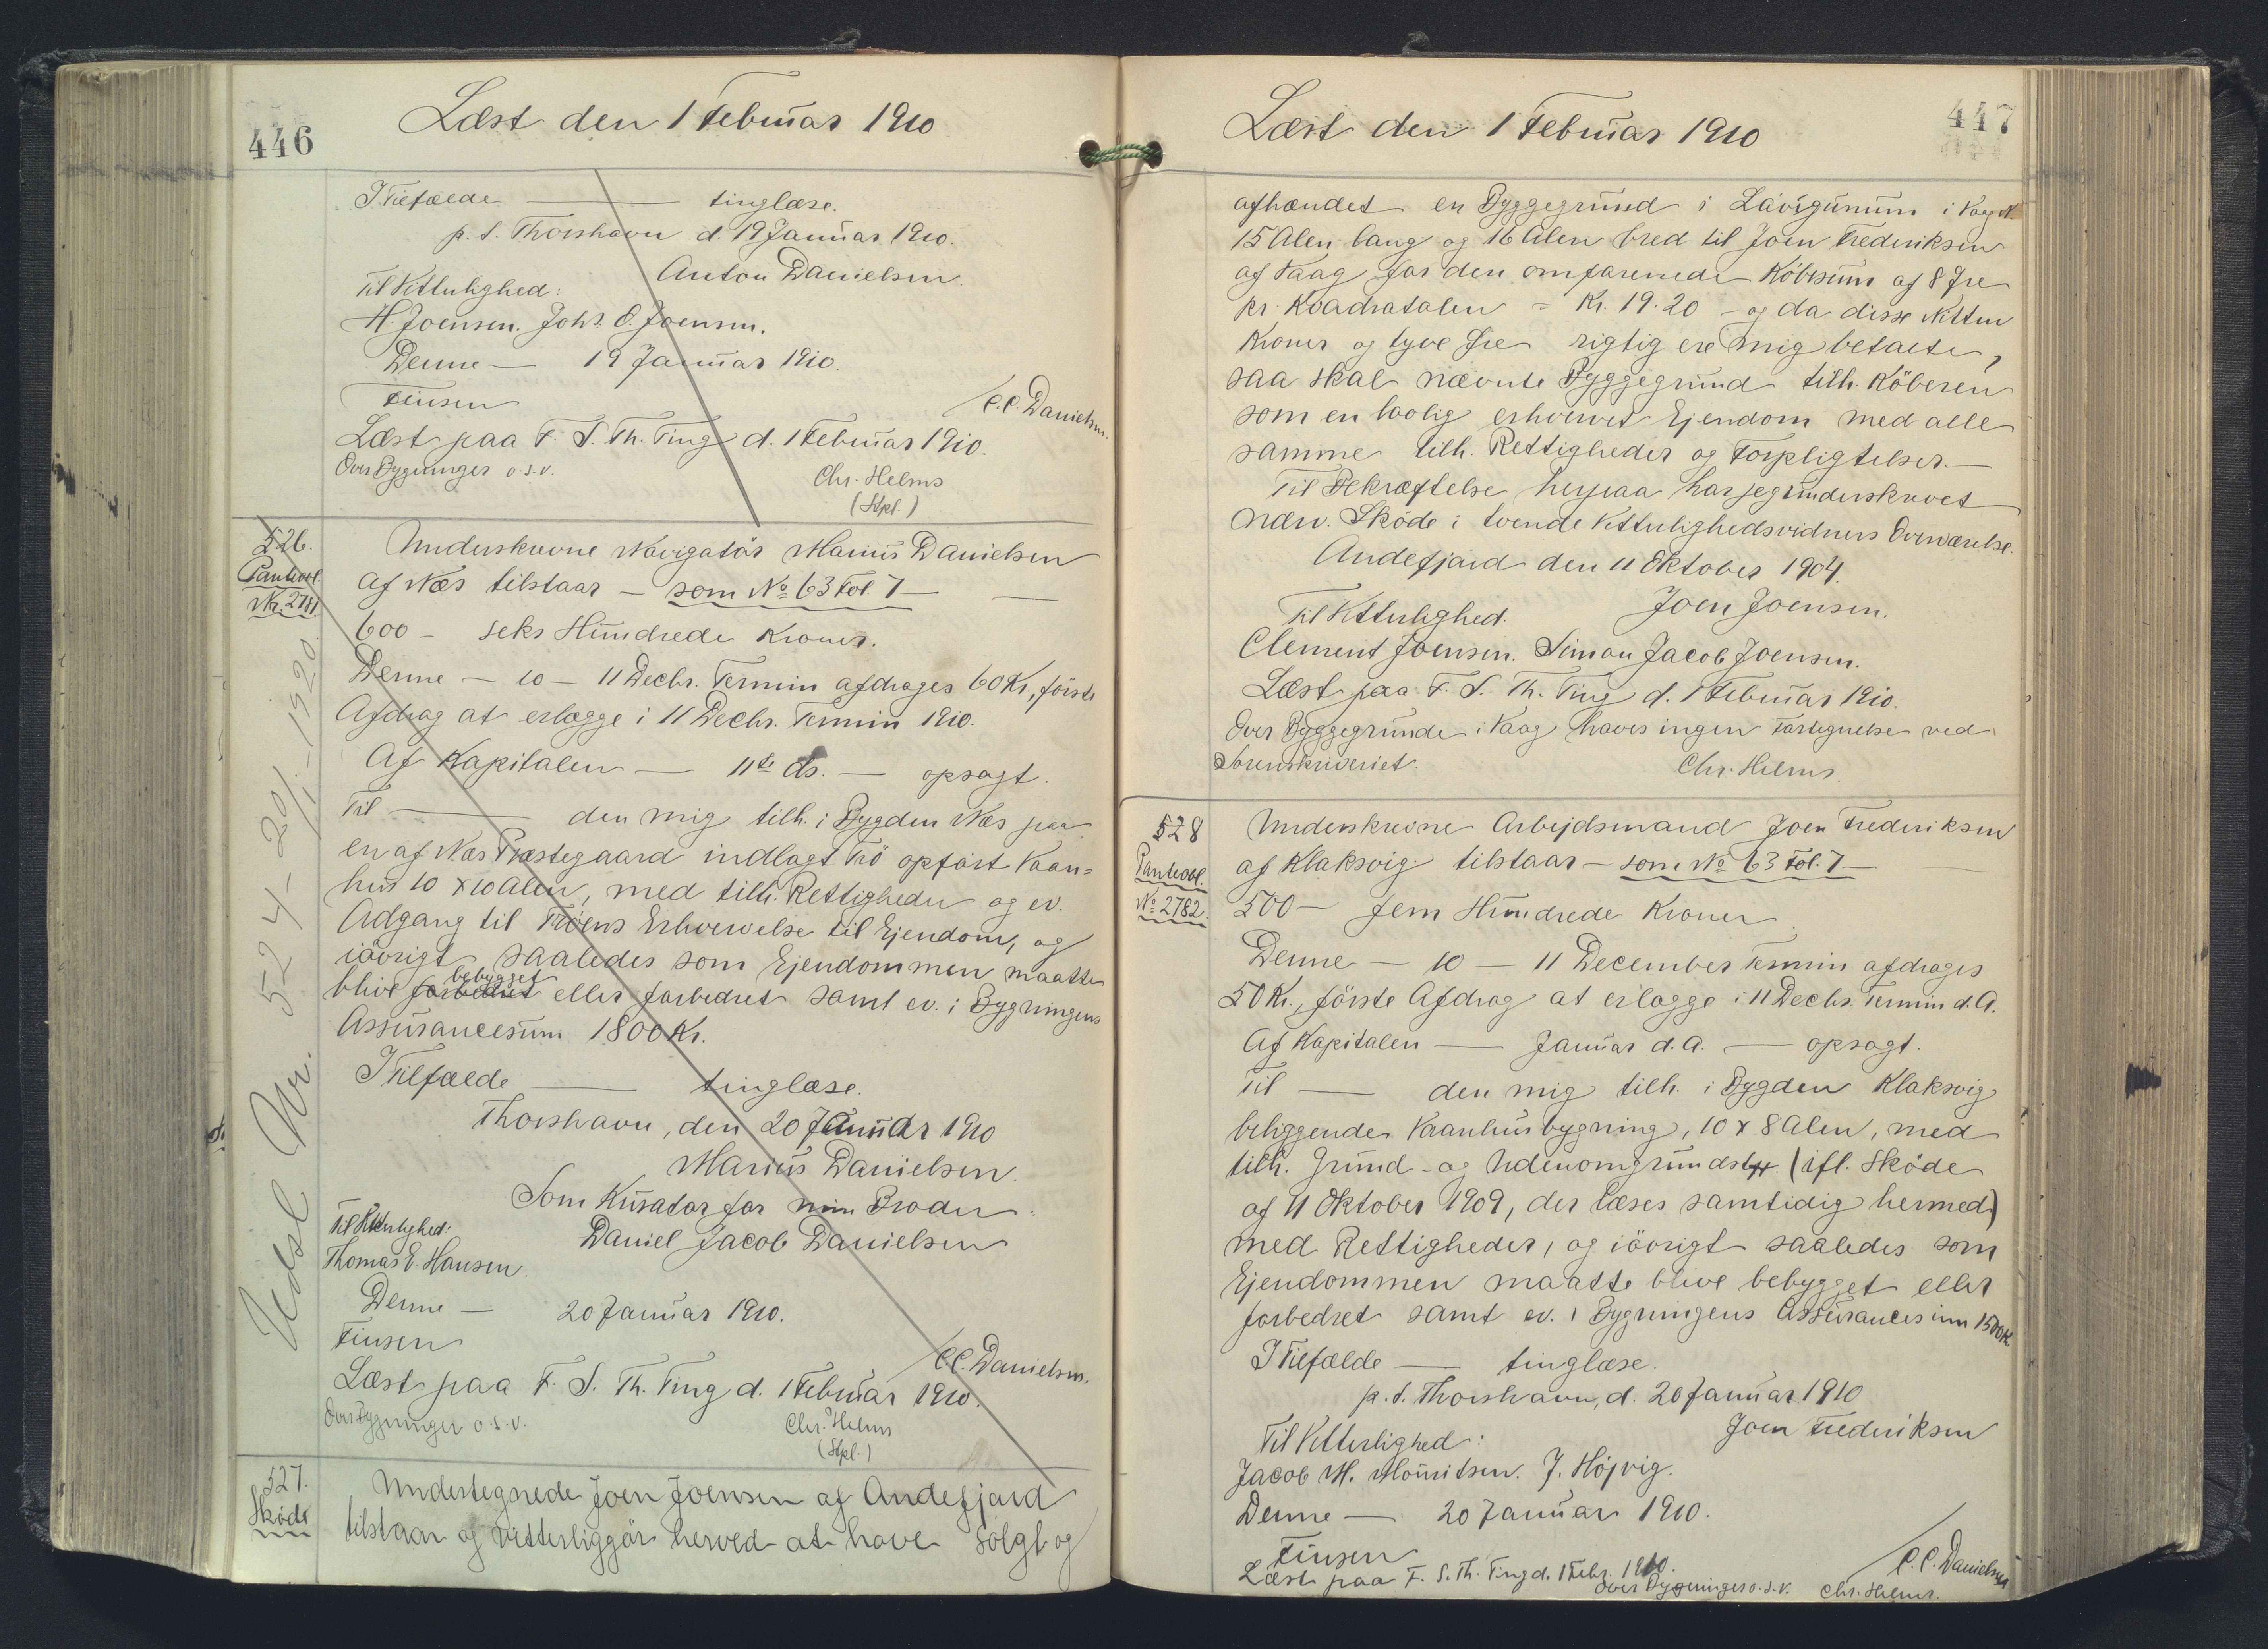 446
Læst den 1 Februar 1910
I Tilfælde — tinglæse.
p. t. Thorshavn d. 19 Januar 1910.
Anton Danielsen.
Til Vitterlighed:
H. Joensen. Johs. O. Joensen.
Denne — 19 Januar 1910.
Finsen
/C.C. Danielsen.
Læst paa F. S. Th. Ting d. 1 Februar 1910.
Over Bygninger o.s.v.
Chr. Helms
(Stpl.)
526.
Panteobl.
Nr. 2781.
Underskrevne Navigatör Marius Danielsen
af Næs tilstaar — som No 63 Fol. 7 —
600 — seks Hundrede Kroner.
Denne — 10 — 11 Decbr. Termin afdrages 60 Kr., förste
Afdrag at erlægge i 11 Decbr. Termin 1910.
Af Kapitalen — 11te ds. — opsagt.
Til — den mig tilh. i Bygden Næs paa
en af Næs Præstegaard indlagt Trö opfört Vaan-
hus 10 x 10 Alen, med tilh. Rettigheder og ev.
Adgang til Tröens Erhvervelse til Ejendom, og
iövrigt saaledes som Ejendommen maatte
blive forbedret bebygget eller forbedret samt ev. i Bygningens
Assurancesum 1800 Kr.
I Tilfælde — tinglæse.
Thorshavn, den 20 Januar 1910
Marius Danielsen.
Som Kurator for min Broder:
Til Vitterlighed:
Daniel Jacob Danielsen
Thomas E. Hansen.
Denne — 20 Januar 1910.
Finsen
/C.C. Danielsen.
Læst paa F. S. Th. Ting d. 1 Februar 1910.
Over Bygninger o.s.v.
Chr. Helms
(Stpl.)
Udsl Nr. 524 - 20/1 - 1920.
527.
Sköde
Undertegnede Joen Joensen af Andefjord
tilstaar og vitterliggör herved at have solgt og
447
Læst den 1 Februar 1910
afhændet en Byggegrund i Lávigunum i Vaag N.
15 Alen lang og 16 Alen bred til Joen Frederiksen
af Vaag for den omforenede Köbesum af 8 Øre
pr. Kvadratalen = Kr. 19.20 — og da disse Nitten
Kroner og tyve Øre rigtig ere mig betalte,
saa skal nævnte Byggegrund tilh. Köberen
som en lovlig erhvervet Ejendom med alle
samme tilh. Rettigheder og Forpligtelser. —
Til Bekræftelse herpaa har jeg underskrevet
nærv. Sköde i tvende Vitterlighedsvidners Overværelse.
Andefjord den 11 Oktober 1904.
Til Vitterlighed.
Joen Joensen.
Clement Joensen. Simon Jacob Joensen.
Læst paa F. S. Th. Ting d. 1 Februar 1910.
Over Byggegrunde i Vaag haves ingen Fortegnelse ved
Sorenskriveriet.
Chr. Helms.
528
Panteobl.
No 2782.
Underskrevne Arbejdsmand Joen Frederiksen
af Klaksvig tilstaar — som No 63 Fol. 7 —
500 — fem Hundrede Kroner
Denne — 10 — 11 December Termin afdrages
50 Kr., förste Afdrag at erlægge i 11 Decbr. Termin d. A.
Af Kapitalen — Januar d. A. — opsagt.
Til — den mig tilh. i Bygden Klaksvig
beliggende Vaanhusbygning, 10 x 8 Alen, med
tilh. Grund- og Udenomgrundst. (ifl. Sköde
af 11 Oktober 1909, der læses samtidig hermed)
med Rettigheder, og iövrigt saaledes som
Ejendommen maatte blive bebygget eller
forbedret samt ev. i Bygningens Assurancesum 1500 Kr
I Tilfælde — tinglæse.
p. t. Thorshavn, d. 20 Januar 1910
Joen Frederiksen
Til Vitterlighed:
Jacob M. Mouritsen. J. Höjvig.
Denne — 20 Januar 1910.
Finsen
/C.C. Danielsen
Læst paa F. S. Th. Ting d. 1 Febr. 1910.
Over Bygninger o.s.v. Chr. Helms.